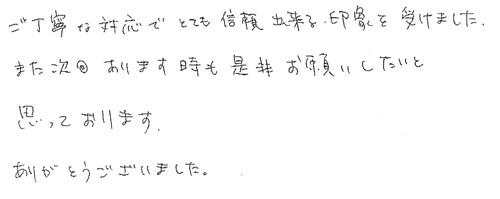 ご丁寧な対応でとても信頼出来る印象を受けました.
また次回あります時も是非お願いしたいと
思っております.
ありがとうございました。